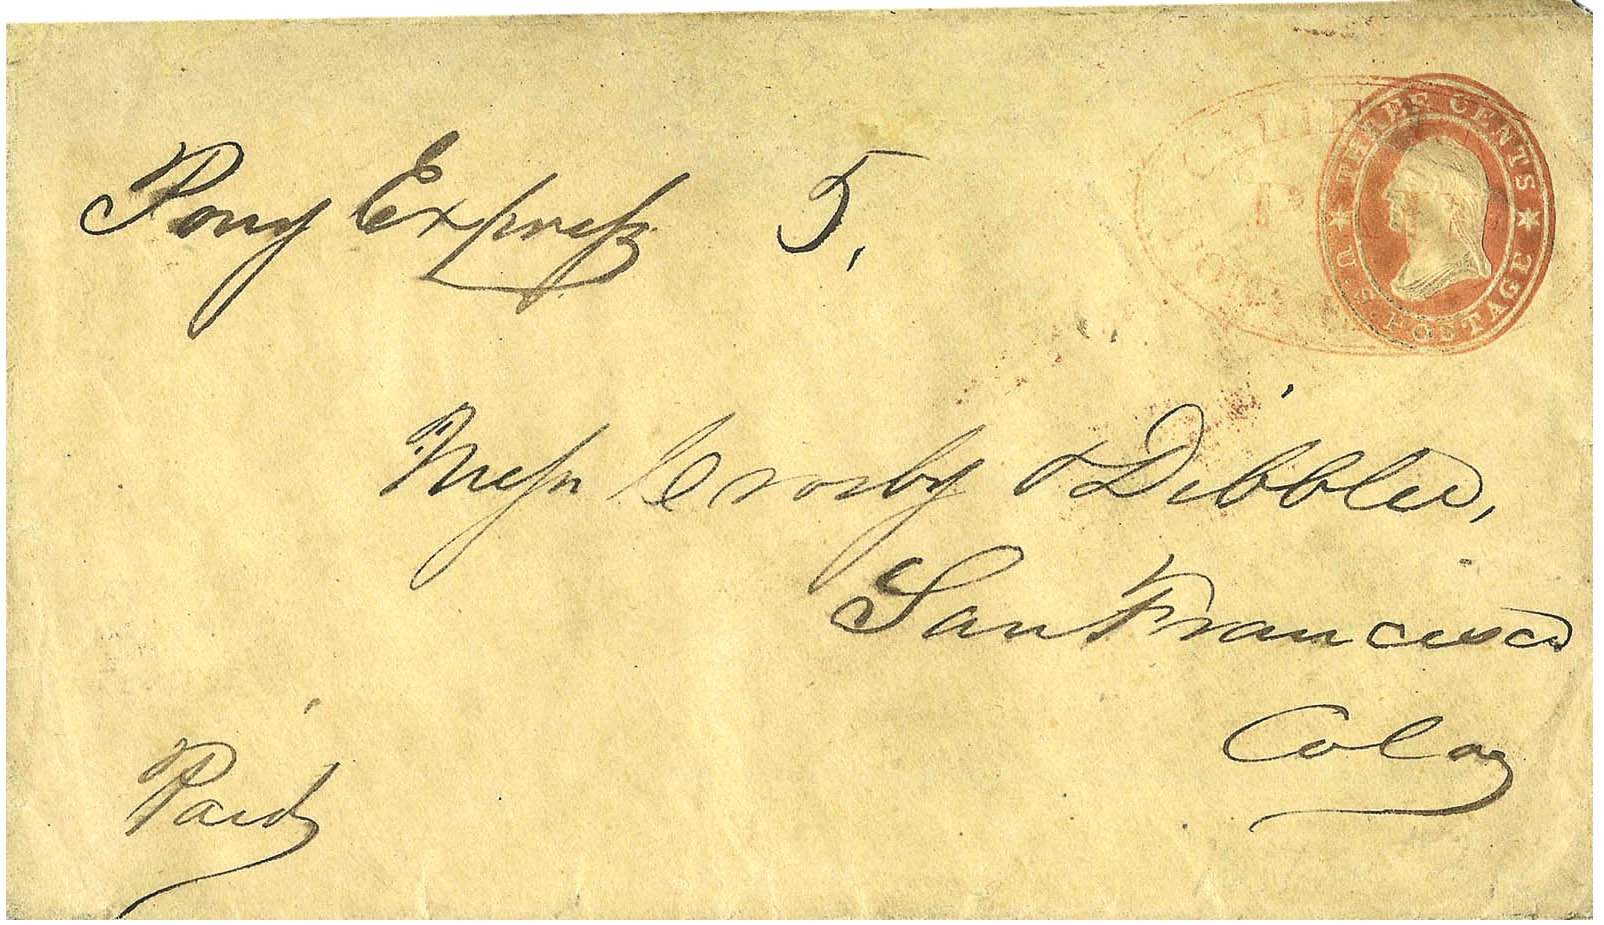 Pony Express 5,
THREE CENTS
U.S. POSTAGE
Messrs Crosby & Dibblee,
San Francisco
Cala
Paid